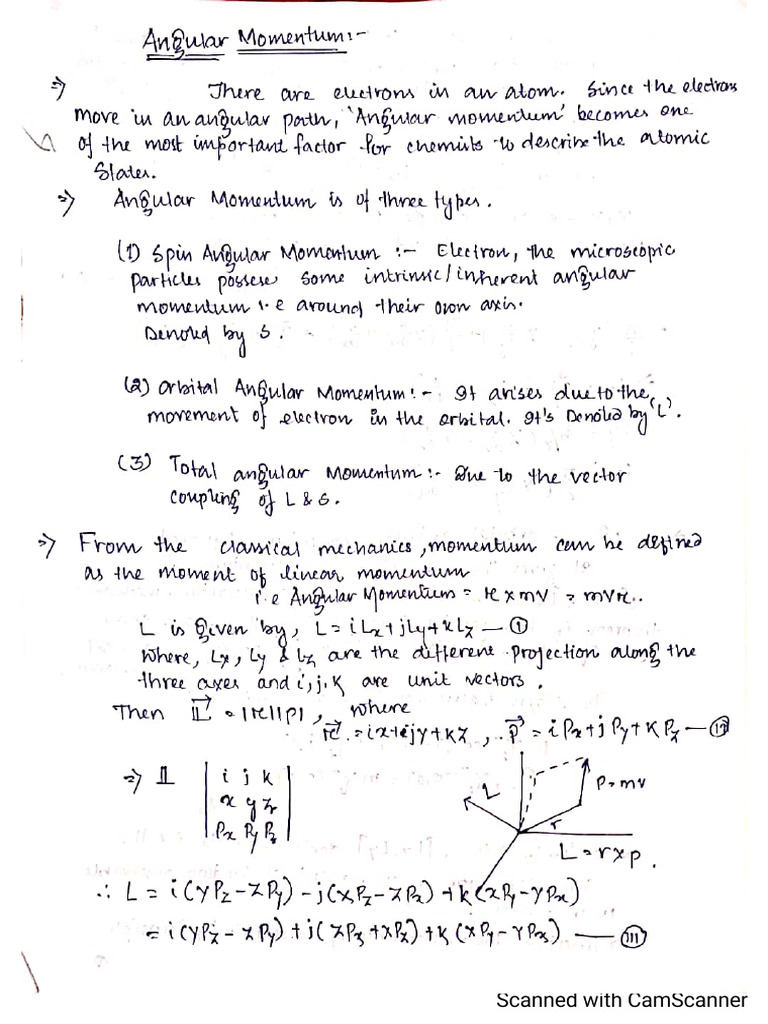 Angular Momentum:-
⇒ There are electrons in an atom. Since the electrons
move in an angular path, 'Angular momentum' becomes one
of the most important factor for chemists to describe the atomic
States.
⇒ Angular Momentum is of three types.
(1) Spin Angular Momentum :- Electron, the microscopic
particles possese some intrinsic/inherent angular
momentum i.e around their own axis.
Denoted by S.
(2) Orbital Angular Momentum:- It arises due to the
movement of electron in the orbital. It's Denoted by 'L'.
(3) Total angular Momentum:- Due to the vector
coupling of L & S.
⇒ From the classical mechanics, momentum can be defined
as the moment of linear momentum
i.e Angular Momentum = r x mv = mvr.
L is given by, L = iLx + jLy + kLz — (I)
Where, Lx, Ly & Lz are the different projection along the
three axes and i, j, k are unit vectors.
Then L = |r||p|, where
r = ix + jy + kz, P = iPx + jPy + kPz — (II)
⇒ L | i j k |
| x y z |
| Px Py Pz |
L
P = mv
r
L = r x p.
∴ L = i(yPz - zPy) - j(xPz - zPx) + k(xPy - yPx)
= i(yPz - zPy) + j(zPx + xPz) + k(xPy - yPx) — (III)
Scanned with CamScanner